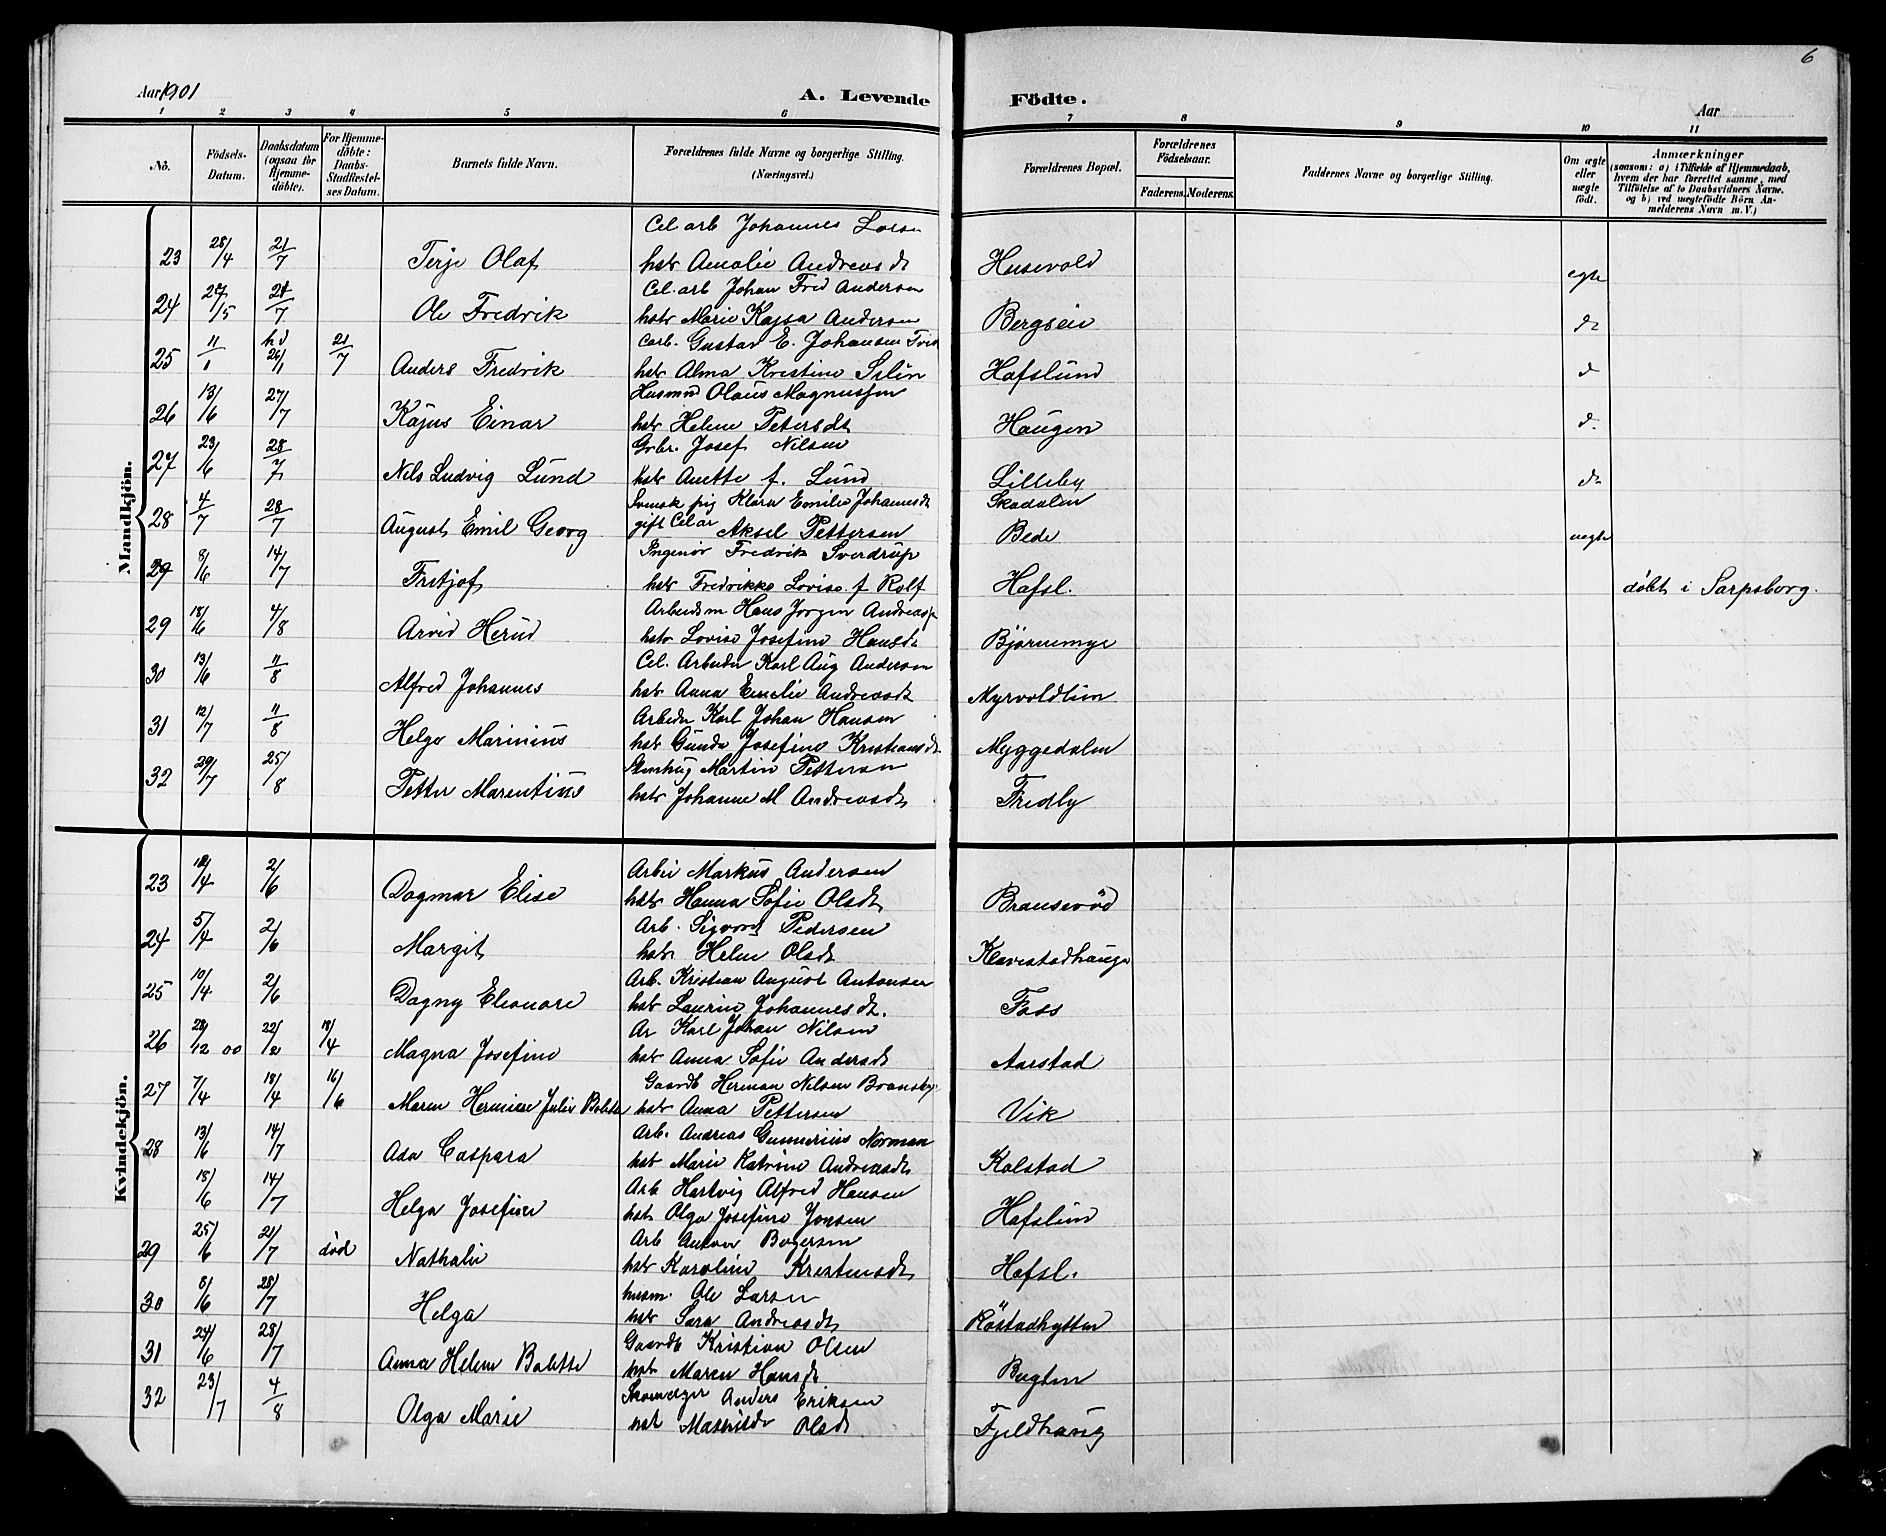 6
Aar 1901 A. Levende Födte. Aar
1 2 3 4 5 6 7 8 9 10 11
No. Födsels-Datum. Daabsdatum (ogsaa for Hjemme-döbte). For Hjemme-döbte: Daabs-Stadfæstel-ses Datum. Barnets fulde Navn. Forældrenes fulde Navne og borgerlige Stilling. (Næringsvei.) Forældrenes Bopæl. Forældrenes Födselsaar. Faderens. Moderens. Faddernes Navne og borgerlige Stilling. Om ægte eller uægte födt. Anmærkninger (saasom: a) i Tilfælde af Hjemmedaab, hvem der har forrettet samme, med Tilföielse af to Daabsvidners Navne, og b) ved uægtefödte Börn An-melderens Navn m. V.)
Mandkjön.
Cel arb Johannes Larsen
23 28/4 21/7 Terje Olaf hstr Amalie Andreasdt Husevold egte
Cel. arb Johan Fred Andersen
24 /5 21/7 Ole Fredrik hstr Marie Kajsa Andersen Bergseie do
Carb. Gustav E. Johansen
25 11 hd 21/7 Anders Fredrik hstr Alma Kristine Hafslund do
Husmd Olaus Magnussen
26 13/6 27/7 Kajus Einar hstr Helene Petersdt Haugen do
Grbr. Josef Nilsen
27 23/6 28/7 Nils Ludvig Lund hstr Anette f. Lund Lilleby do
Svensk pig Klara Emilie Johannesdt Skadalen
28 4/7 28/7 August Emil Georg gift Celar Aksel Pettersen Bede uegte
Ingeniør Fredrik Sverdrup
29 8/6 14/7 Fritjof hstr Fredrikke Lovise f. Rolf Hafsl. döbt i Sarpsborg.
Arbeidsm Hans Jørgen Andreass
29 18/6 4/8 Arvid Herud hstr Lovise Josefine Hansdt Björnemyr
Cel. Arbeder Karl Aug Andersen
30 13/6 11/8 Alfred Johannes hstr Anna Emelie Andreasdt Myrvoldlien
Arbeder Karl Johan Hansen
31 12/7 11/8 Helge Marinius hstr Gunda Josefine Kristiansdt Myggedalen
Stenhug Martin Pettersen
32 29/7 25/8 Petter Marentius hstr Johanne M Andreasdt Fredly
Kvindekjön.
Arbei Markus Andersen
23 18/4 2/6 Dagmar Elise hstr Hanna Sofie Olsdt Branseröd
Arb. Sigvard Pedersen
24 5/4 2/6 Margit hstr Helene Olsdt Klavestadhauge
Arb. Kristian August Antonsen
25 10/4 2/6 Dagny Eleonore hstr Laurine Johannesdt. Foss
Ar Karl Johan Nilsen
26 28/12 00 22/2 18/4 Magna Josefine hstr Anna Sofie Andersdt Aarstad
Gaardb Herman Nilsen Bransby
27 7/4 18/4 16/6 Maren Hermine Julie Bolette hstr Anna Pettersen Vik
Arb. Andreas Gunnerius Norman
28 13/6 14/7 Ada Caspara hst Marie Katrine Andreasdt Kolstad
Arb Hartvig Alfred Hansen
18/6 14/7 Helga Josefine hst Olga Josefine Jonsen Hafslund
Arb Anton Bergersen
29 25/6 21/7 död Nathalie hstr Karoline Kristensdt Hafsl.
husm. Ole Larsen
30 8/6 28/7 Helga hstr Sara Andreasdt Röstadhytten
Gaardb Kristian Olsen
31 24/6 28/7 Anna Helene Bolette hst Maren Hansdt Bugten
Skomager Anders Eriksen
32 23/7 4/8 Olga Marie hst Mathilde Olsdt Fjeldhaug